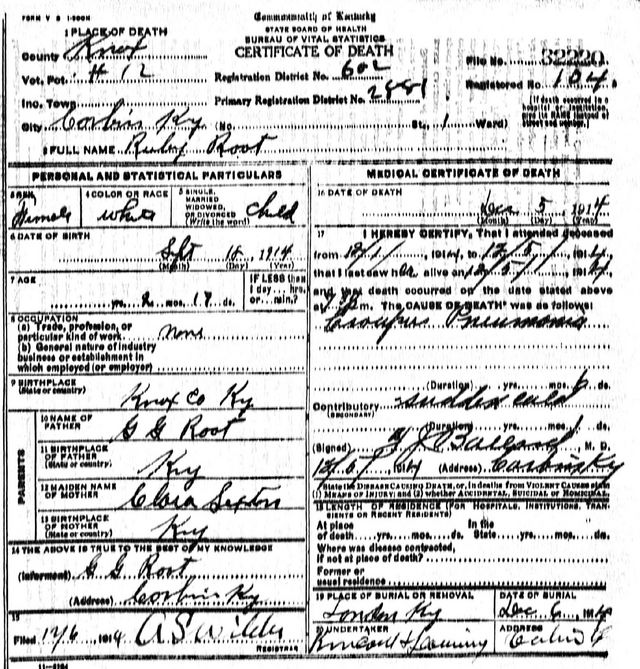 FORM V S 1-500M
Commonwealth of Kentucky
STATE BOARD OF HEALTH
BUREAU OF VITAL STATISTICS
CERTIFICATE OF DEATH
1 PLACE OF DEATH
County Knox
Vot. Pct. # 12
Inc. Town
City Corbin Ky
Registration District No. 602
Primary Registration District No. 2481
(No. St., Ward)
File No. 32220
Registered No. 104
[If death occurred in a hospital or institution, give its NAME instead of street and number.]
2 FULL NAME Ruby Root
PERSONAL AND STATISTICAL PARTICULARS
3 SEX
Female
4 COLOR OR RACE
white
5 SINGLE, MARRIED WIDOWED, OR DIVORCED (Write the word)
Child
6 DATE OF BIRTH
Sept 18, 1914
(Month) (Day) (Year)
7 AGE
yrs. 2 mos. 17 ds.
IF LESS than 1 day... hrs. or... min.?
8 OCCUPATION
(a) Trade, profession, or particular kind of work none
(b) General nature of industry business or establishment in which employed (or employer)
9 BIRTHPLACE
(State or country)
Knox Co Ky
PARENTS
10 NAME OF FATHER
G G Root
11 BIRTHPLACE OF FATHER
(State or country)
Ky
12 MAIDEN NAME OF MOTHER
Clara Sexton
13 BIRTHPLACE OF MOTHER
(State or country)
Ky
14 THE ABOVE IS TRUE TO THE BEST OF MY KNOWLEDGE
(Informant) G G Root
(Address) Corbin Ky
15
Filed 12/6, 1914
REGISTRAR
11-3184
MEDICAL CERTIFICATE OF DEATH
16 DATE OF DEATH
Dec 5 1914
(Month) (Day) (Year)
17 I HEREBY CERTIFY, That I attended deceased
from 12/1, 1914, to 12/5, 1914,
that I last saw her alive on 12/5, 1914,
and that death occurred on the date stated above
at m. The CAUSE OF DEATH* was as follows:
Croupus Pneumonia
(Duration) yrs. mos. 6 ds.
Contributory sudden cold
(SECONDARY)
(Duration) yrs. mos. ds.
(Signed) M. D.
12/6, 1914 (Address)
*State the DISEASE CAUSING DEATH, or, in deaths from VIOLENT CAUSES state (1) MEANS OF INJURY; and (2) whether ACCIDENTAL, SUICIDAL or HOMICIDAL.
18 LENGTH OF RESIDENCE (FOR HOSPITALS, INSTITUTIONS, TRANSIENTS OR RECENT RESIDENTS)
At place of death yrs. mos. ds. In the State yrs. mos. ds.
Where was disease contracted, if not at place of death?
Former or usual residence
19 PLACE OF BURIAL OR REMOVAL
London Ky
DATE OF BURIAL
Dec 6, 1914
20 UNDERTAKER
ADDRESS